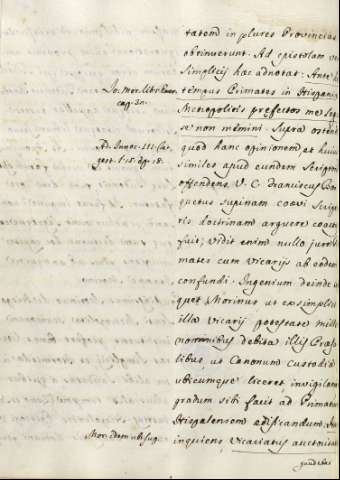 tatem in plures Provincias
obtinuerunt. Ad epistolam
Simplicij hæc adnotat: Ante
tempus Primates in Hispania
Metropoleis præfectos me
se non memini. Supra ostend
quod hanc opinionem et huius
similes apud eundem
offendens V. C. Franciscus
supinam coevi
ris doctrinam arguere coact
fuit; vidit enim nullo jure
mates cum Vicarijs ab eodem
confundi. Ingenium deinde
Morinus ut ex simplici
illa vicarij potestate
debita illis
libus, ut Canonum custodia
ubicumque liceret invigilar
gradum sibi facit ad Primatu
Hispalensem ædificandum:
inquiens, Vicariatus auctoritat
gaudebat
Jo. Mor. lib.
cap. 30.
Ad. Innoc. III.
gest. l. 15. ep. 18.
Mor. idem ubi sup.